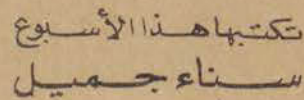 تكتبها هذا الأسبوع
سناء جميل